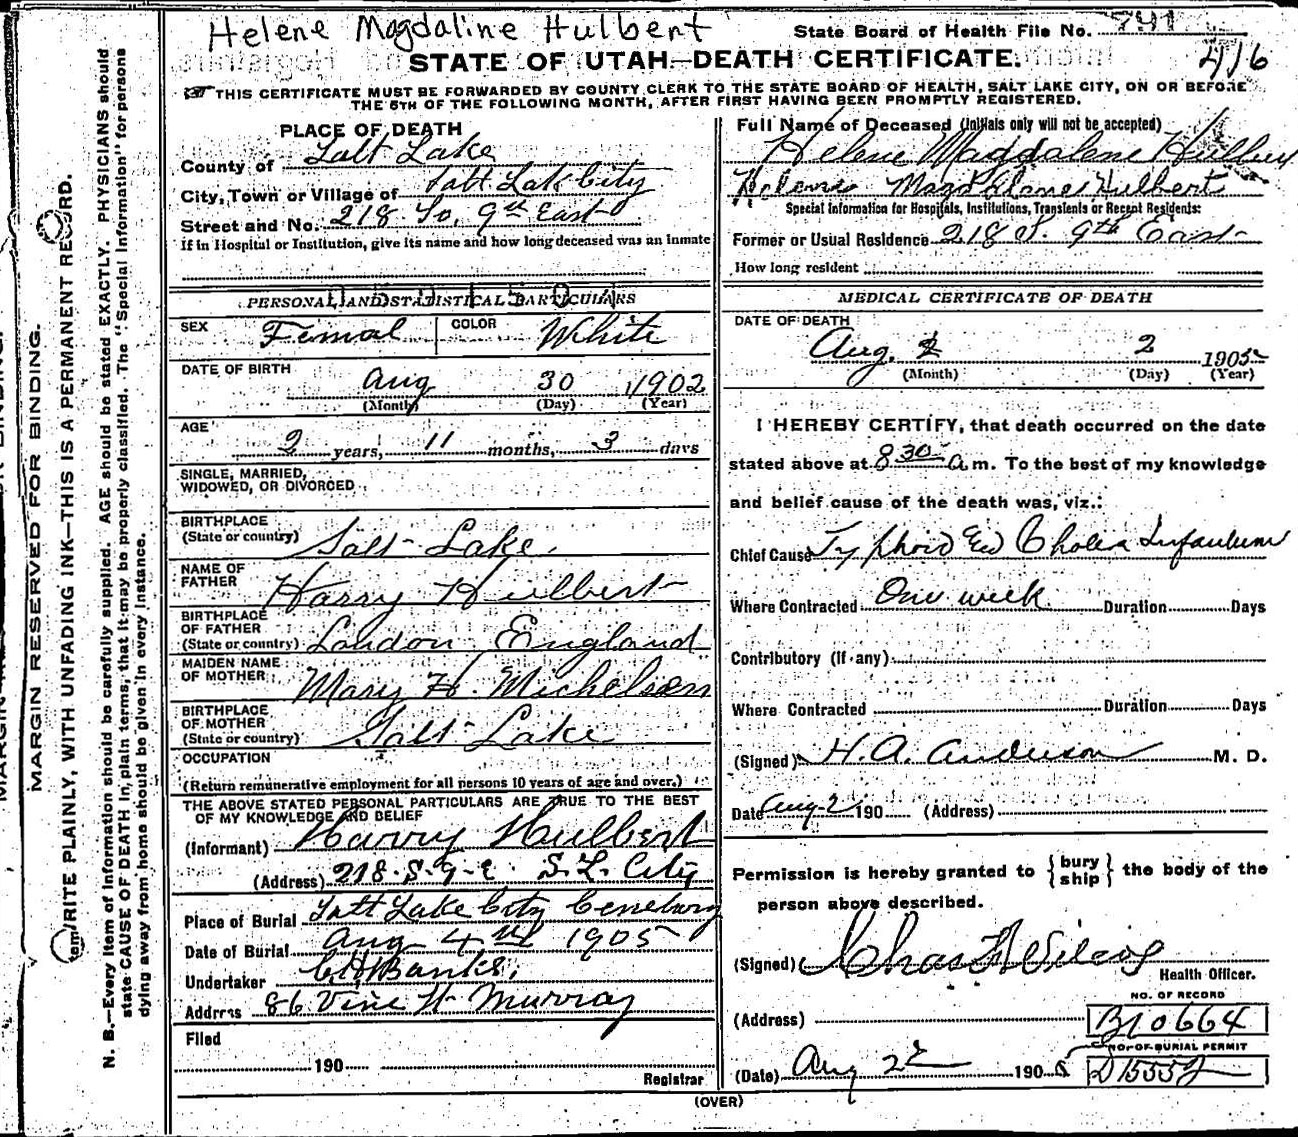 Helene Magdaline Hulbert
State Board of Health File No. 741
416
STATE OF UTAH—DEATH CERTIFICATE.
THIS CERTIFICATE MUST BE FORWARDED BY COUNTY CLERK TO THE STATE BOARD OF HEALTH, SALT LAKE CITY, ON OR BEFORE
THE 5TH OF THE FOLLOWING MONTH, AFTER FIRST HAVING BEEN PROMPTLY REGISTERED.
PLACE OF DEATH
County of Salt Lake
City, Town or Village of Salt Lak City
Street and No. 218 So. 9th East
if in Hospital or Institution, give its name and how long deceased was an inmate
PERSONAL AND STATISTICAL PARTICULARS
SEX Femal COLOR White
DATE OF BIRTH
Aug 30 1902
(Month) (Day) (Year)
AGE
2 years, 11 months, 3 days
SINGLE, MARRIED,
WIDOWED, OR DIVORCED
BIRTHPLACE
(State or country) Salt Lake.
NAME OF
FATHER Harry Hulbert
BIRTHPLACE
OF FATHER
(State or country) London England
MAIDEN NAME
OF MOTHER Mary H. Michelsen
BIRTHPLACE
OF MOTHER
(State or country) Salt Lake
OCCUPATION
(Return remunerative employment for all persons 10 years of age and over.)
THE ABOVE STATED PERSONAL PARTICULARS ARE TRUE TO THE BEST
OF MY KNOWLEDGE AND BELIEF
(Informant) Harry Hulbert
(Address) 218. S. 9. E. S. L. City
Place of Burial Salt Lake City Cemetery
Date of Burial Aug 4th 1905
Undertaker Banks.
Address 86 Vine St Murray
Filed
190
Registrar
Full Name of Deceased (Initials only will not be accepted)
Helene Magdalene Hulbert
Helene Magdalene Hulbert
Special Information for Hospitals, Institutions, Transients or Recent Residents:
Former or Usual Residence 218 S. 9th East
How long resident
MEDICAL CERTIFICATE OF DEATH
DATE OF DEATH
Aug. 2 1905
(Month) (Day) (Year)
I HEREBY CERTIFY, that death occurred on the date
stated above at 8 30 a. m. To the best of my knowledge
and belief cause of the death was, viz.:
Chief Cause Typhoid Cholera Infantum
Where Contracted One week Duration Days
Contributory (if any)
Where Contracted Duration Days
(Signed) H. A. Anderson M. D.
Date Aug 2 190 (Address)
Permission is hereby granted to { bury
ship } the body of the
person above described.
(Signed) Chas Wilcox
Health Officer.
NO. OF RECORD
(Address) B10664
NO. OF BURIAL PERMIT
(Date) Aug 2d 1905 D1555
(OVER)
MARGIN RESERVED FOR BINDING.
WRITE PLAINLY, WITH UNFADING INK—THIS IS A PERMANENT RECORD.
N. B.—Every item of information should be carefully supplied. AGE should be stated EXACTLY. PHYSICIANS should
state CAUSE OF DEATH in plain terms, that it may be properly classified. The "Special Information" for persons
dying away from home should be given in every instance.